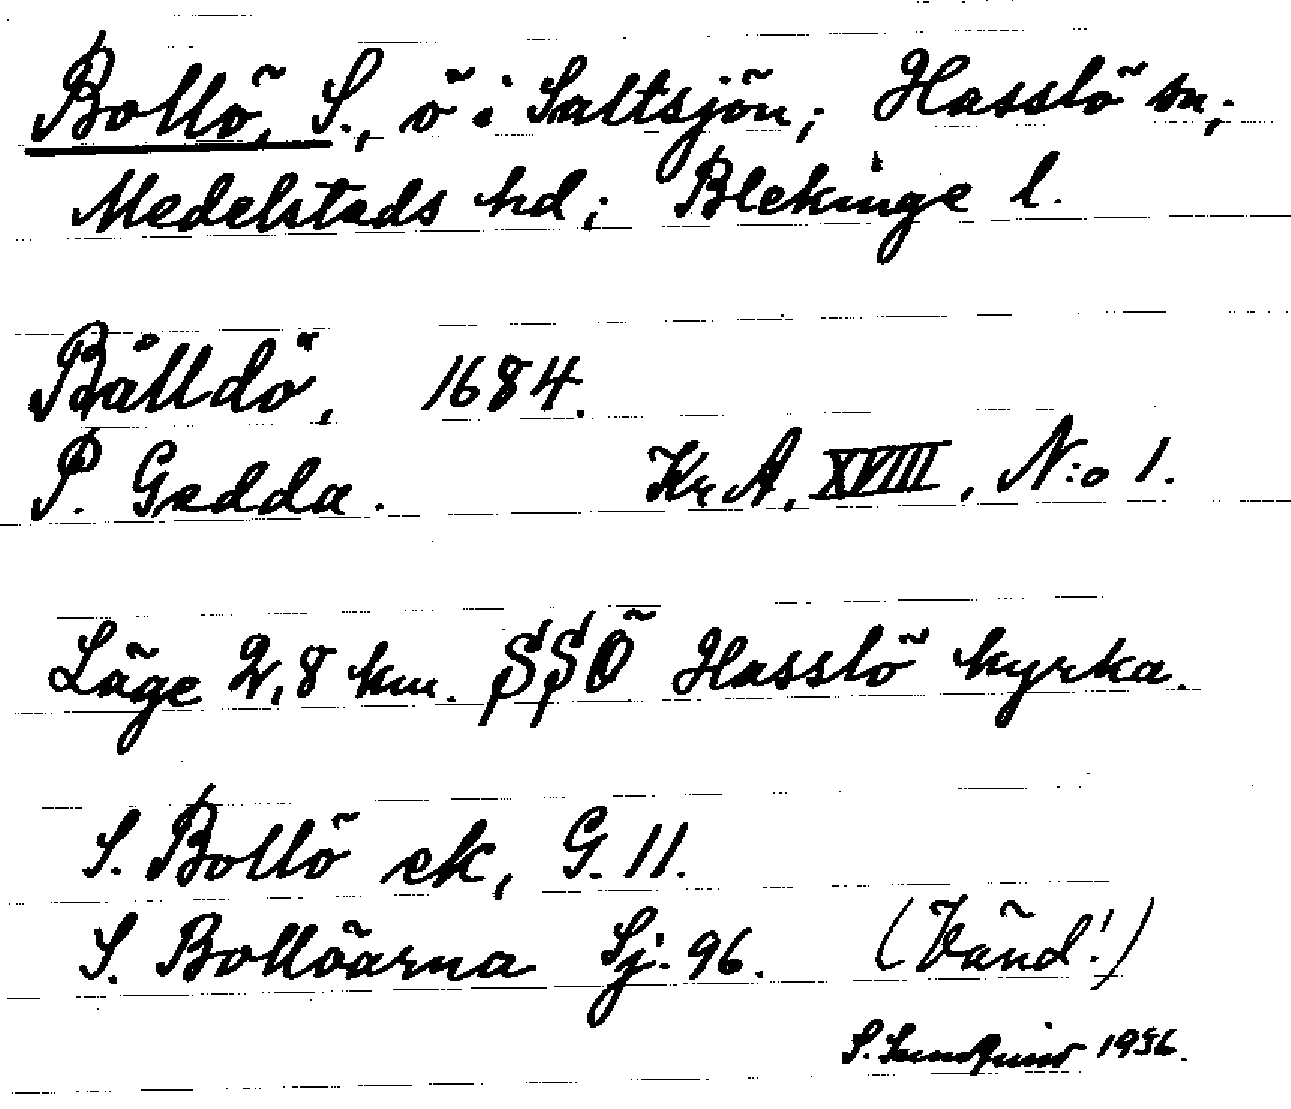 Bollö, S., ö i Saltsjön; Hasslö sn;
Medelstads hd; Blekinge l.
Bålldö, 1684.
P. Gedda. Kr A, XVIII, N:o 1.
Läge 2,8 km. SSÖ Hasslö kyrka.
S. Bollö ek, G. 11.
S. Bollöarna Sj. 96. (Vänd!)
S. Sundquist 1936.